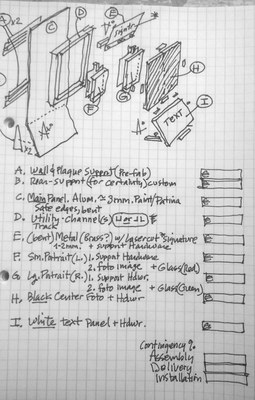 A x2
C
D
E
signature
B
F
G
H
I
TEXT
A x2
A. Wall & Plaque Support (Pre-fab)
B. Rear-support (for certainty) custom
C. Main Panel, Alum. ≈ 3mm. Paint/Patina
Safe edges, bent
D. Utility-Channel(s)
Track
E. (bent) Metal (Brass?) w/ Lasercut "Signature
1-2mm. + support Hardware
F. Sm. Patrait (L.) 1. Support Hardware
2. foto image + Glass (Red)
G. Lg. Patrait (R.) 1. Support Hdwr.
2. foto image + Glass (Green)
H. Black Center Foto + Hdwr
I. White text Panel + Hdwr.
Contingency %
Assembly
Delivery
Installation